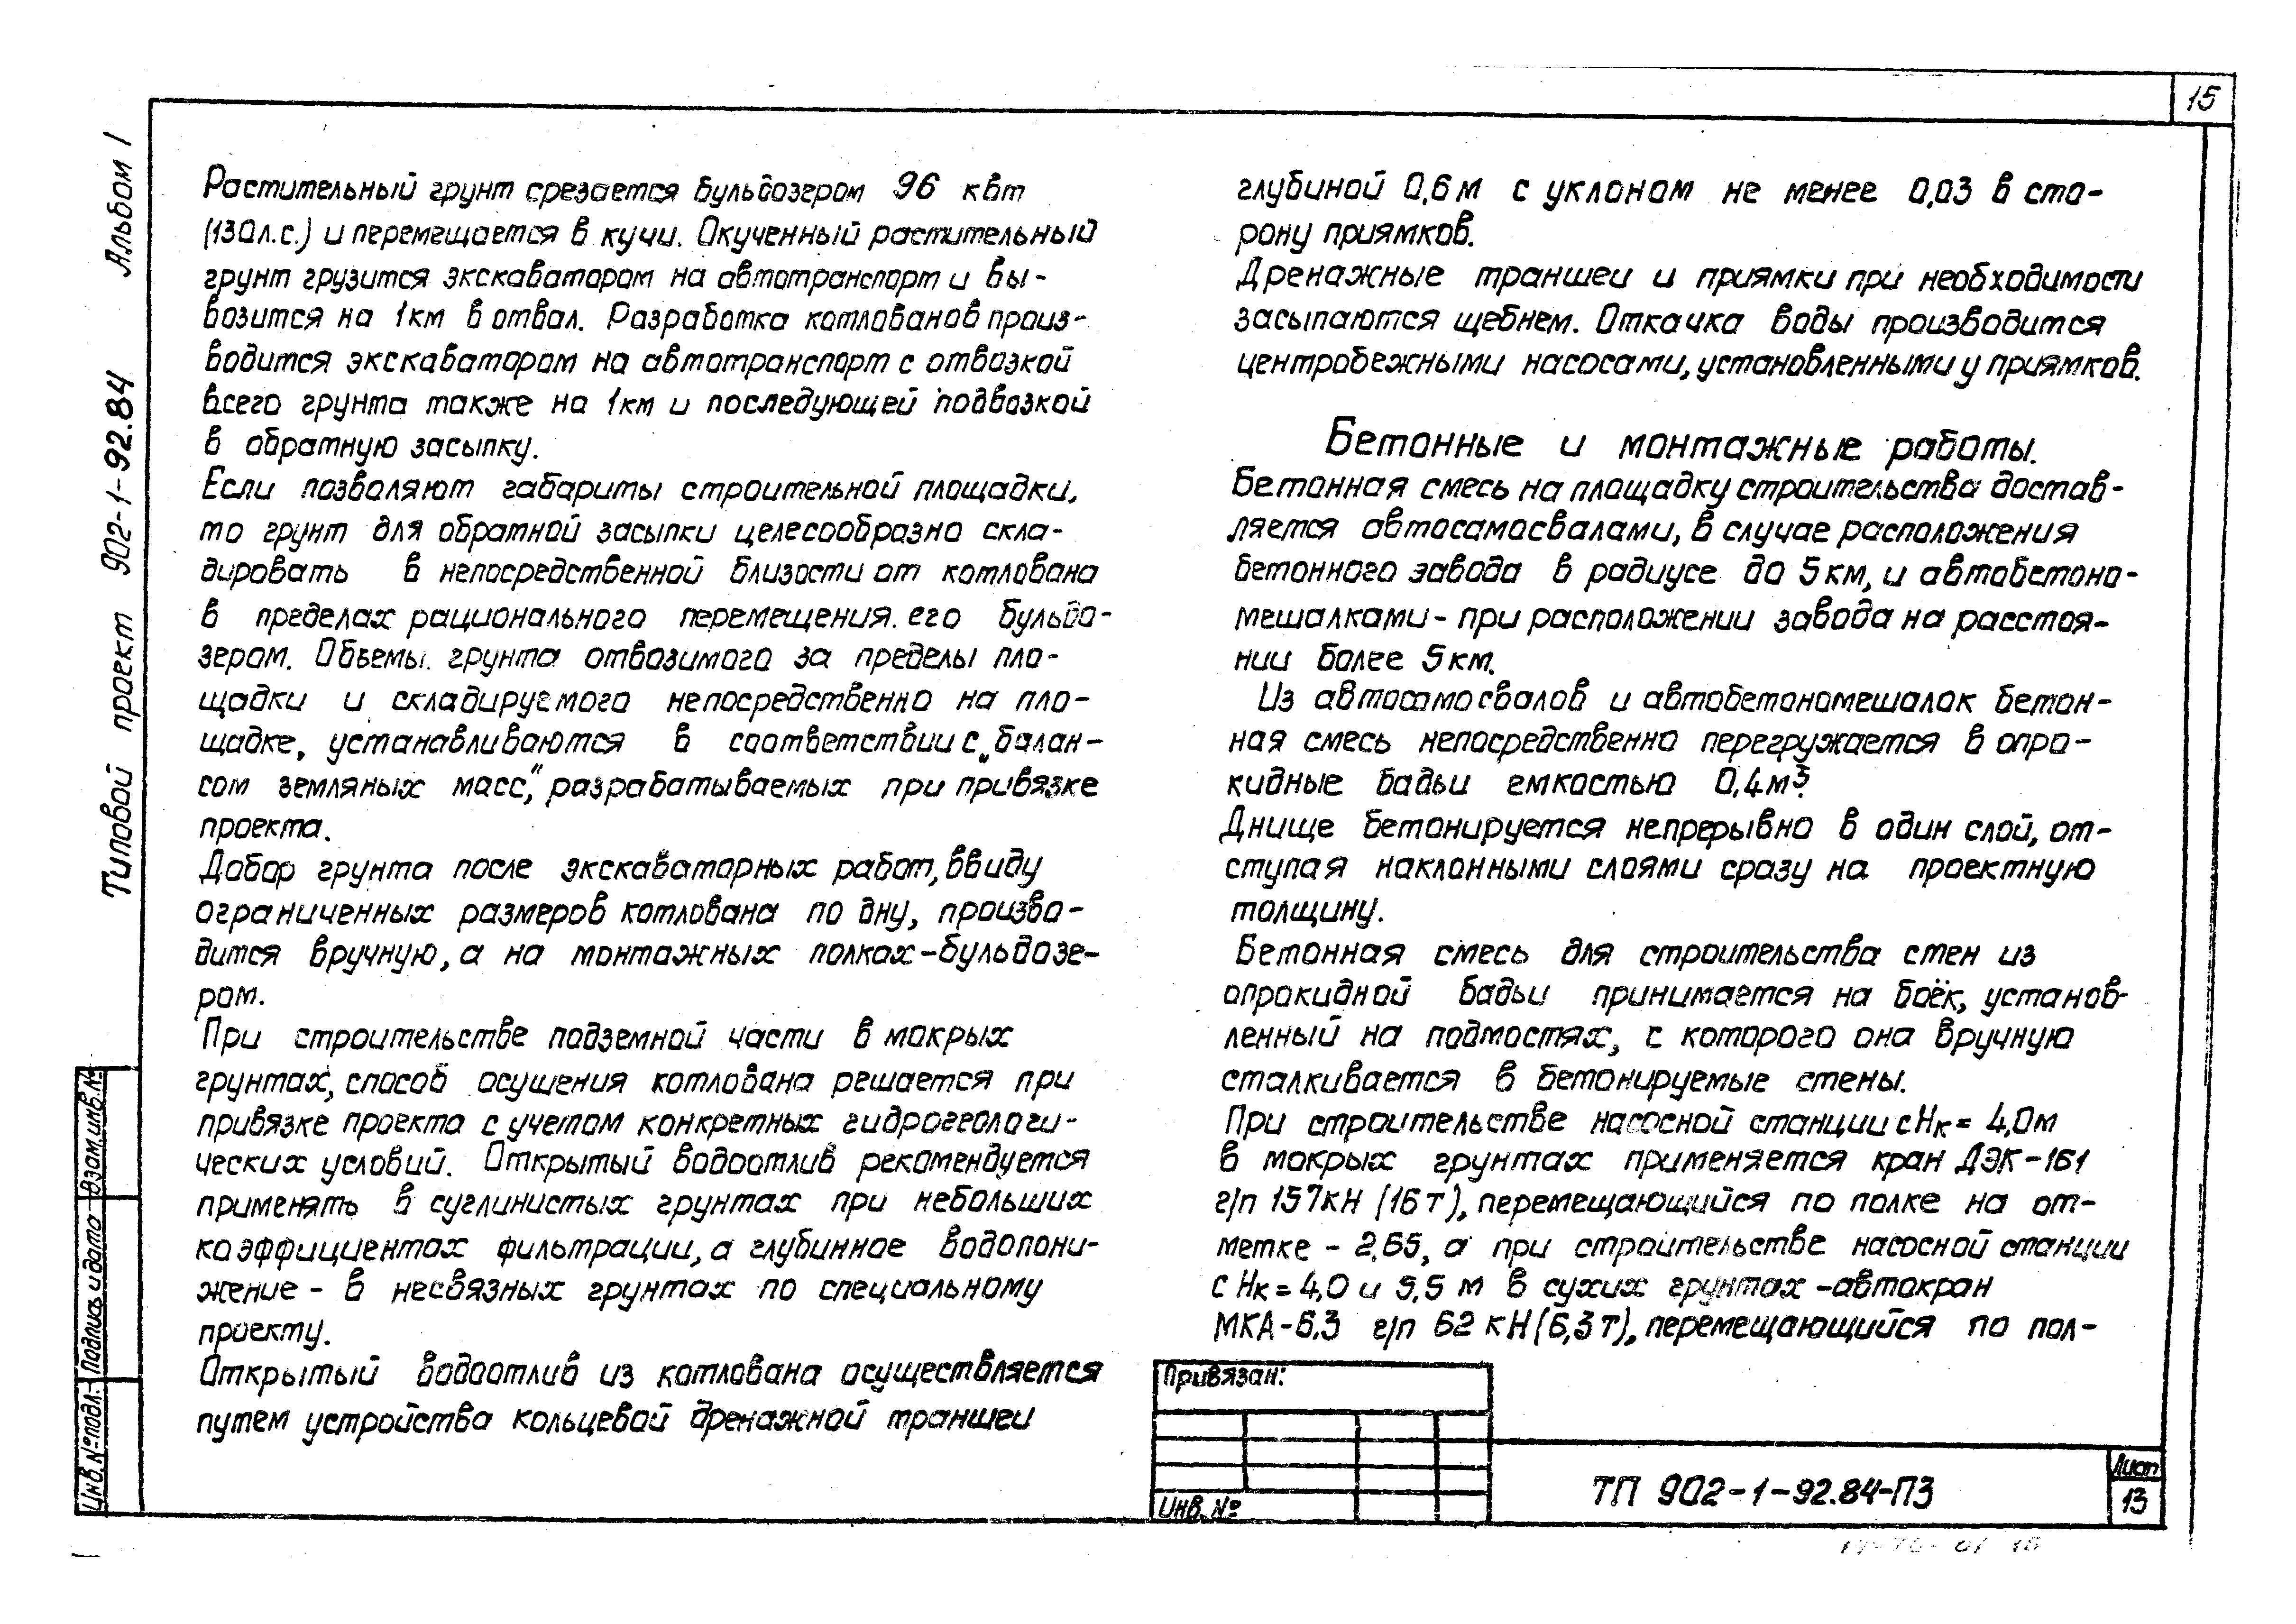 15
Альбом I
Типовой проект 902-1-92.84
Растительный грунт срезается бульдозером 96 квт
(130л.с.) и перемещается в кучи. Окученный растительный
грунт грузится экскаватором на автотранспорт и вы-
возится на 1км в отвал. Разработка котлованов произ-
водится экскаватором на автотранспорт с отвозкой
всего грунта также на 1км и последующей подвозкой
в обратную засыпку.
Если позволяют габариты строительной площадки,
то грунт для обратной засыпки целесообразно скла-
дировать в непосредственной близости от котлована
в пределах рационального перемещения его бульдо-
зером. Объемы грунта отвозимого за пределы пло-
щадки и складируемого непосредственно на пло-
щадке, устанавливаются в соответствии с „балан-
сом земляных масс“, разрабатываемых при привязке
проекта.
Добор грунта после экскаваторных работ, ввиду
ограниченных размеров котлована по дну, произво-
дится вручную, а на монтажных полках-бульдозе-
ром.
При строительстве подземной части в мокрых
грунтах, способ осушения котлована решается при
привязке проекта с учетом конкретных гидрогеологи-
ческих условий. Открытый водоотлив рекомендуется
применять в суглинистых грунтах при небольших
коэффициентах фильтрации, а глубинное водопони-
жение - в несвязных грунтах по специальному
проекту.
Открытый водоотлив из котлована осуществляется
путем устройства кольцевой дренажной траншеи
глубиной 0,6м с уклоном не менее 0,03 в сто-
рону приямков.
Дренажные траншеи и приямки при необходимости
засыпаются щебнем. Откачка воды производится
центробежными насосами, установленными у приямков.
Бетонные и монтажные работы.
Бетонная смесь на площадку строительства достав-
ляется автосамосвалами, в случае расположения
бетонного завода в радиусе до 5км, и автобетоно-
мешалками - при расположении завода на расстоя-
нии более 5км.
Из автосамосвалов и автобетономешалок бетон-
ная смесь непосредственно перегружается в опро-
кидные бадьи емкостью 0,4м³.
Днище бетонируется непрерывно в один слой, от-
ступая наклонными слоями сразу на проектную
толщину.
Бетонная смесь для строительства стен из
опрокидной бадьи принимается на боёк, установ-
ленный на подмостях, с которого она вручную
сталкивается в бетонируемые стены.
При строительстве насосной станции с Нк= 4,0м
в мокрых грунтах применяется кран ДЭК-161
г/п 157кН (16т), перемещающийся по полке на от-
метке - 2,65, а при строительстве насосной станции
с Нк=4,0 и 5,5 м в сухих грунтах -автокран
МКА-6,3 г/п 62 кН(6,3т), перемещающийся по пол-
Привязан:
Инв. №
ТП 902-1-92.84-ПЗ
Лист
13
Взам.инв.№
Подпись и дата
Инв.№подл.